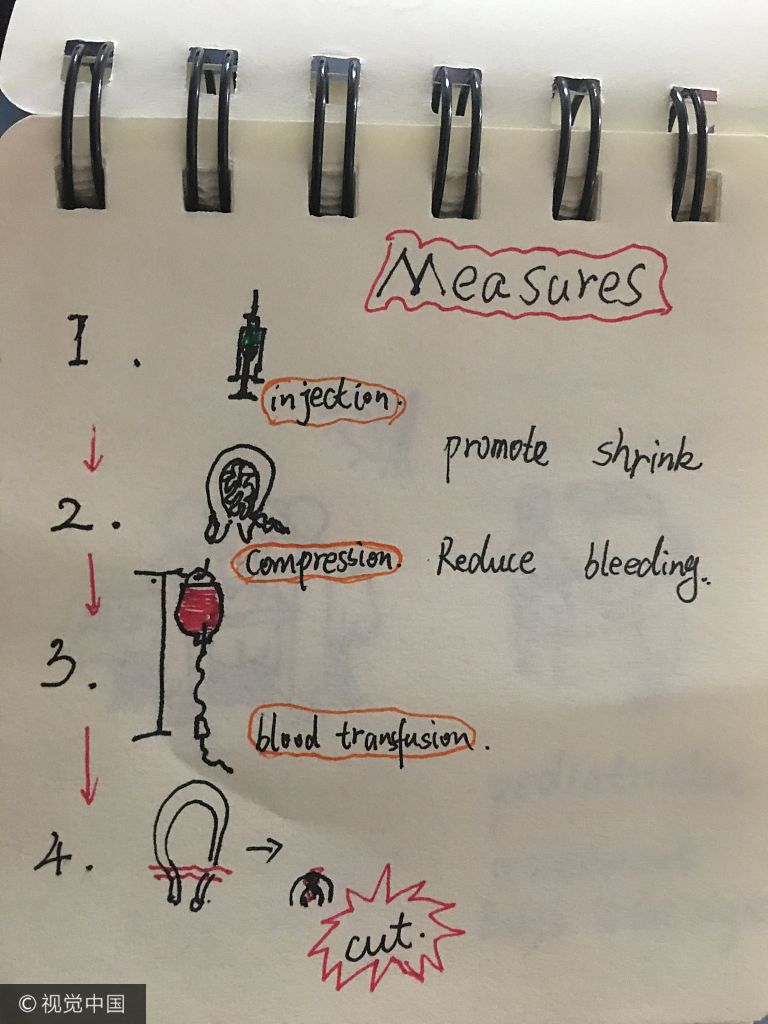 Measures
1.
injection.
promote shrink
2.
Compression. Reduce bleeding.
3.
blood transfusion.
4.
cut.
© 视觉中国